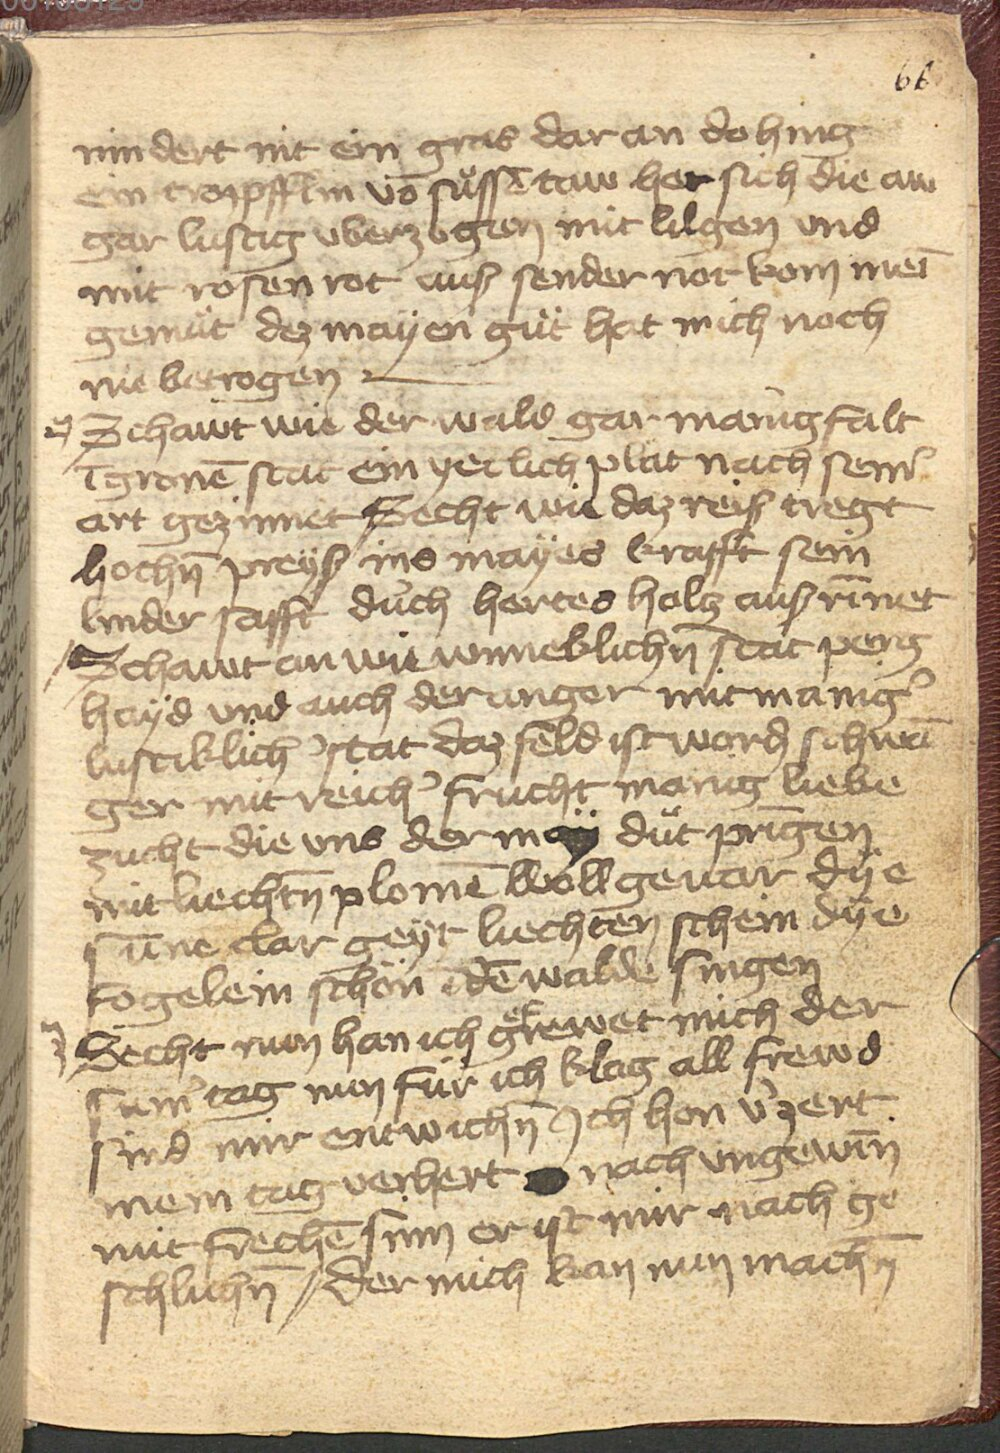 66
nindert nit ein gras dar an do hing
ein tropfflin vō süssē taw het sich die aw
gar lustig vberzogen mit lilgen vnd
mit rosen rot auß sender not kom mei̅
gemüt dez mayen güt hat mich noch
nie betrogen
2 Schawt wie der wald gar manigfalt
ī gronē stat ein yetlich plat nach sein᾽
art gezinnet Secht wie daz reiß tregt
hochn̄ preyß ins mayes krafft sein
linder safft durch hertes holz auß rīnet
Schawt an wie wineklichn̄ stat perg
hayd vnd auch der anger mit manig᾽
lustiklich᾽ stat daz feld ist word schwā
ger mit reich᾽ frucht manig liebe
zucht die vns der may düt prīgen
mit liechtn̄ plomē woll geuar dye
sūne clar geyt liechten schein dye
fogelein schön ī dē walde singen
3 Secht nun han ich gefrewet mich der
sum᾽ tag nun für ich klag all frewd
sind mir entwichn̄ Ich hon v᾽zert
mein tag verhert nach vngewīn
mit frechē sinn er ist mir nach ge
schlichn̄ / Der mich kan nun machn̄